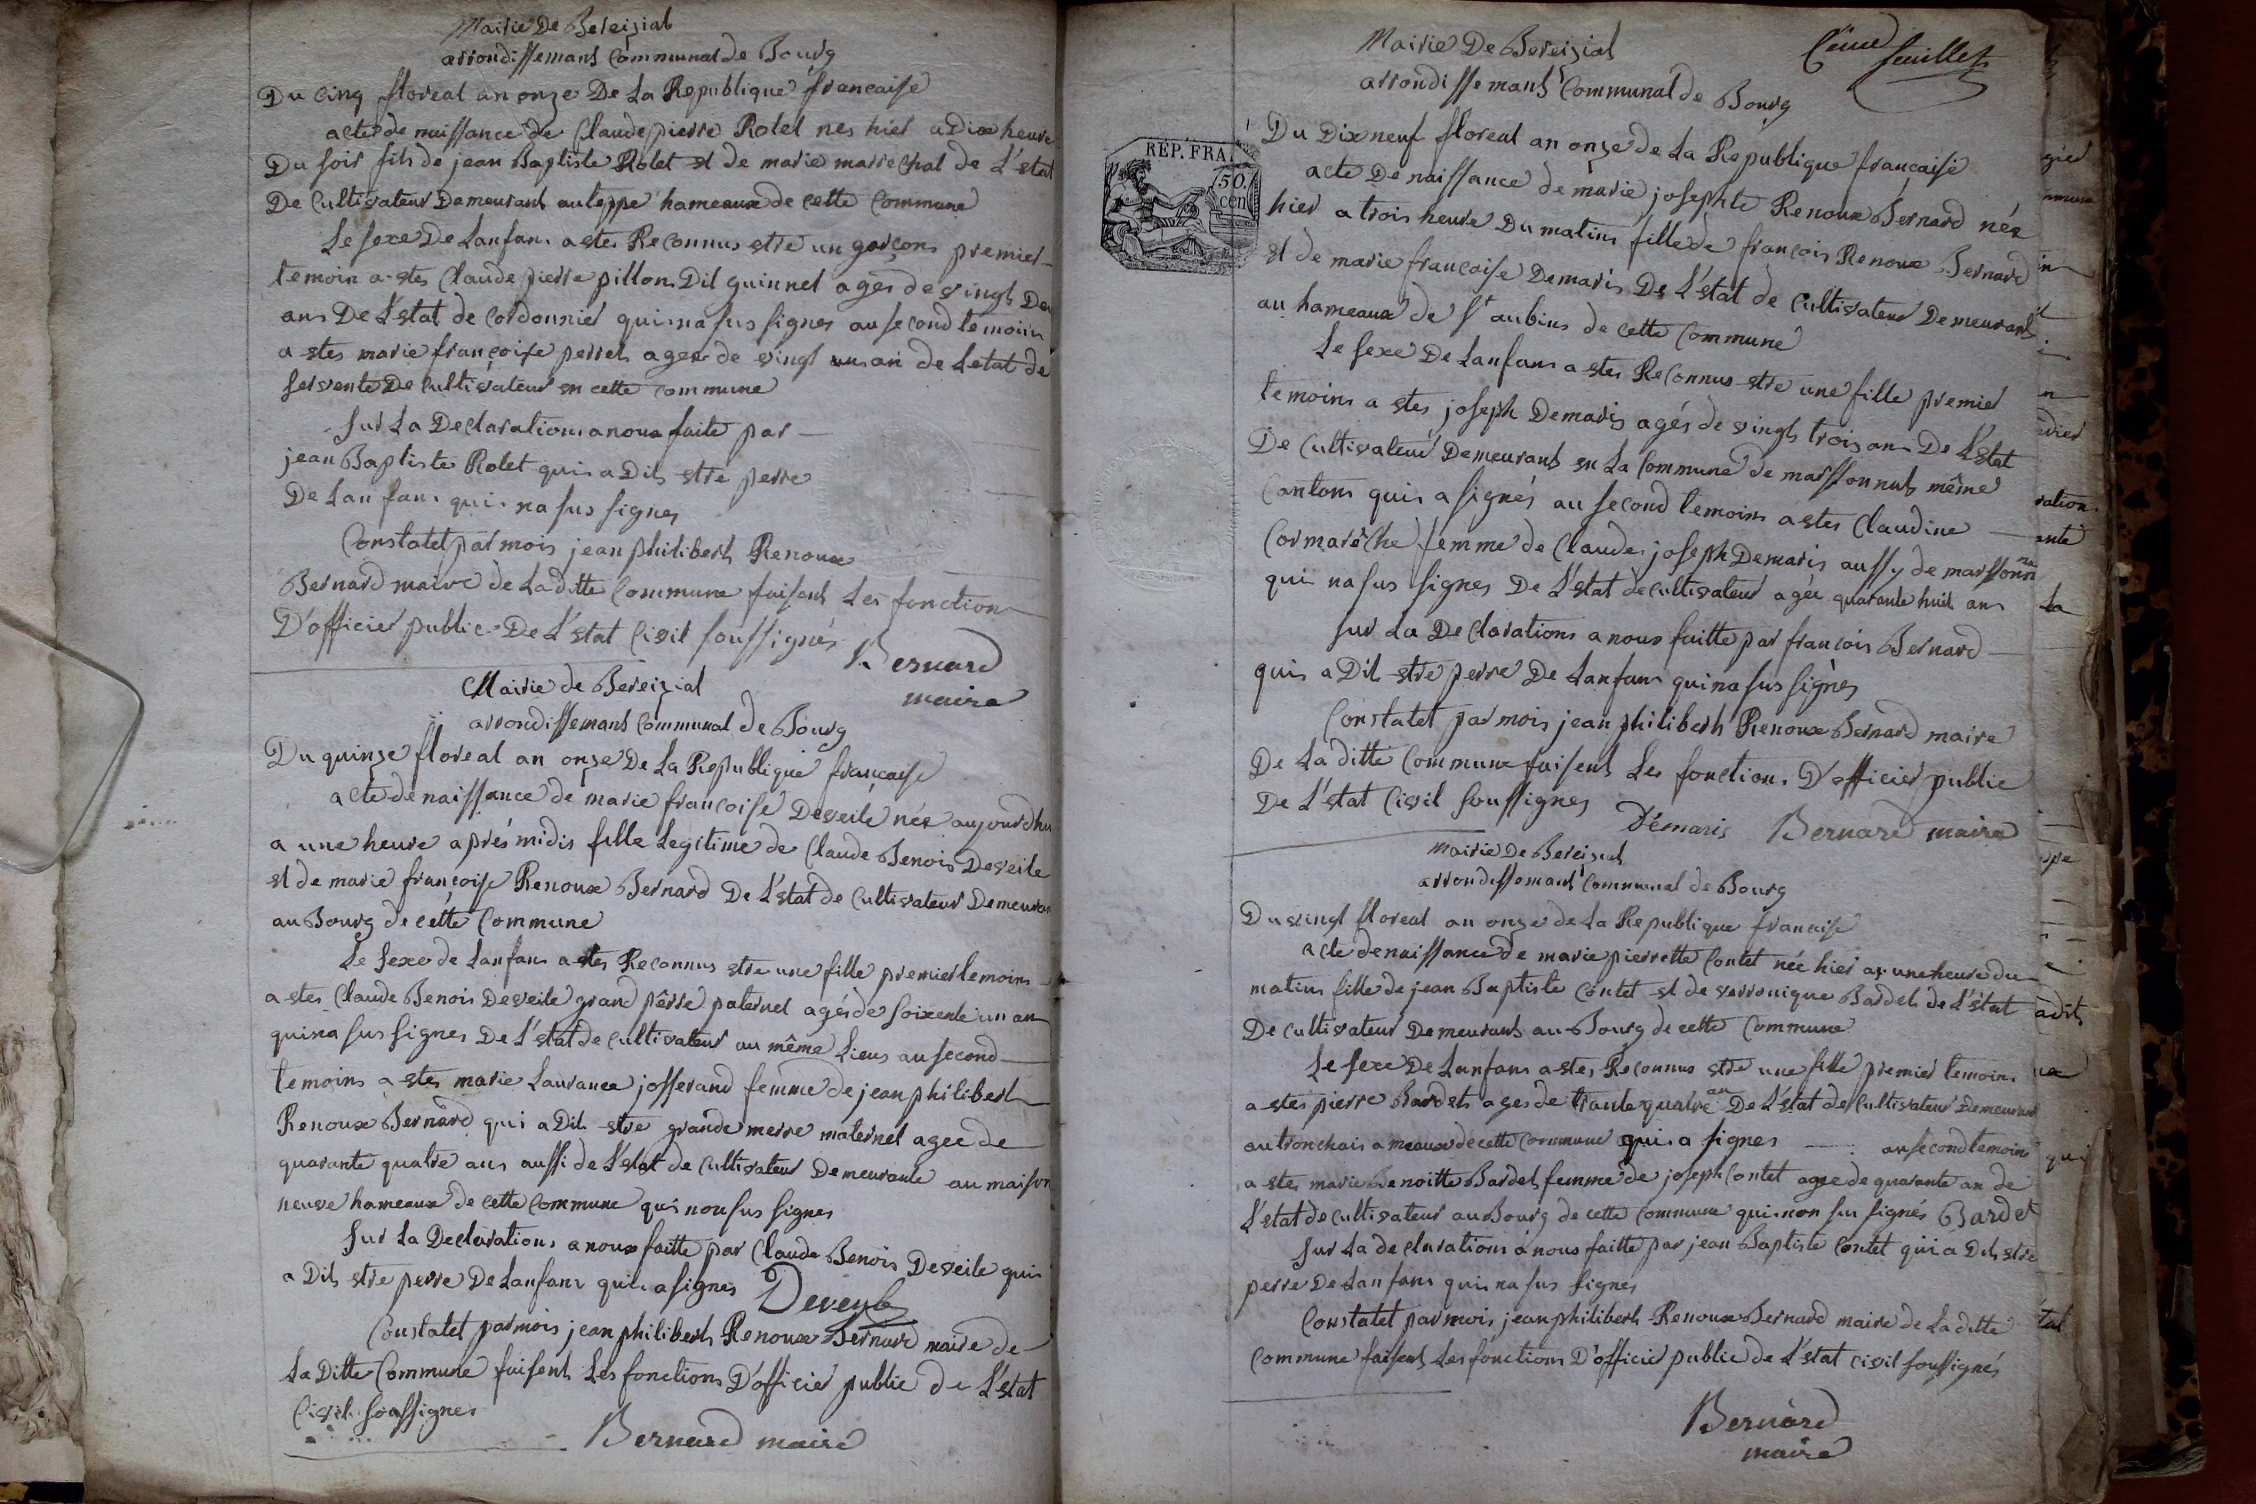 Mairie De Bereizial
arrondissemant Communal de Bourg
Du Cinq floreal an onze De La Republique francaise
acte de naissance de Claude pierre Rolet nes hier a Dix heure
Du soir fils de jean Baptiste Rolet et de marie marrechal de L'estat
De Cultivateur Demeurant au hameaux de cette Commune
Le sexe De Lanfans a etes Reconnus estre un garçons premier
temoin a etes Claude pierre pillon Dit guinnet agés de vingt Deu
ans De L'estat de Cordonnier qui na sus signes au second temoins
a etes marie françoise perret agee de vingt un an de Letat de
servente De Cultivateur en cette commune
Sur La Declarations a nous faite par
jean Baptiste Rolet qui a Dit estre perre
De Lanfans qui na sus signes
Constatet par mois jean philibert Renoux
Bernard maire de La ditte Commune faisent Les fonction
D'officier public De L'estat Civil soussignés
Bernard
maire
Mairie de Bereizial
arrondissemant Communal de Bourg
Du quinze floreal an onze De La Republique francaise
acte de naissance de marie francoise Deveile née aujourdhu
a une heure aprés midis fille Legitime de Claude Benois Deveile
et de marie françoise Renoux Bernard De L'estat de Cultivateur Demeuran
au Bourg de cette Commune
Le sexe de Lanfans a etes Reconnus estre une fille premier temoins
a etes Claude Benois Deveile grand pêrre paternel agés de soixente un an
qui na sus signes De L'estat de Cultivateur au même Lieus au second
temoins a etes marie Laurance josserand femme de jean philibert
Renoux Bernard qui a Dit estre grande merre maternel agee de
quarante quatre ans aussi de L'estat de Cultivateur Demeurante au maison
neuve hameaux de cette Commune qui non sus signes
Sur La Declarations a nous faitte par Claude Benois Deveile qui
a Dit estre perre De Lanfans qui a signes Deveyle
Constatet par mois jean philibert Renoux Bernard maire de
La Ditte Commune faisent Les fonctions D'officier public de L'estat
Civil soussignes
Bernard maire
feuillet
Mairie De Bereizial
arrondissemant Communal de Bourg
REP. FRA
50.
cen
Du Dix neuf floreal an onze de La Republique française
acte De naissance de marie josephte Renoux Bernard née
hier a trois heure Du matins fille de françois Renoux Bernard
et de marie francoise Demaris De L'estat de Cultivateur Demeurant
au hameaux de St aubins de cette Commune
Le sexe De Lanfans a etes Reconnus estre une fille premier
temoins a etes joseph Demaris agés de vingt trois ans De L'estat
De Cultivateur Demeurant en La Commune de marssonnat même
Cantons qui a signés au second temoins a etes Claudine
Cormarêche femme de Claude joseph Demaris aussy de marssonn
qui na sus signes De L'estat de Cultivateur agée quarante huit ans
sur La De clarations a nous faitte par françois Bernard
qui a Dit estre perre De Lanfans qui na sus signès
Constatet par mois jean philibert Renoux Bernard maire
De La ditte Commune faisent Les fonctions D'officier public
De L'estat Civil soussignes
Démaris Bernard maire
mairie De Bereizial
arrondissemant Communal de Bourg
Du vingt floreal an onze de La Republique francaise
acte de naissance de marie pierrette Contet née hier a une heure du
matins fille de jean Baptiste Contet et de verronique Bardet de L'éstat
De Cultivateur Demeurant au Bourg de cette Commune
Le sexe De Lanfans a etes Reconnus estre une fille premier temoins
a etes pierre Bardet ages de trante quatre an De L'estat de Cultivateur Demeurant
au tronchais ameaux de cette Commune qui a signes au second temoins
a etes marie Benoitte Bardet femme de joseph Contet agee de quarante an de
L'estat de Cultivateur au Bourg de cette Commune qui non sus signés Bardet
Sur La de clarations a nous faitte par jean Baptiste Contet qui a Dit estre
perre De Lanfans qui na sus signes
Constatet par mois jean philibert Renoux Bernard maire de La ditte
Commune faisent Les fonctions D'officier public de L'estat civil soussignés
Bernard
maire